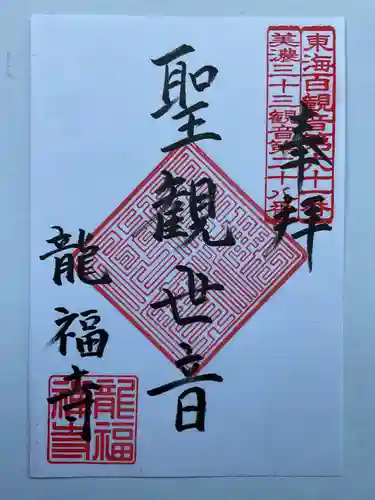 東海百観音第六十一番
美濃三十三観音第二十八番
奉拝
聖観世音
龍福寺
龍福寺